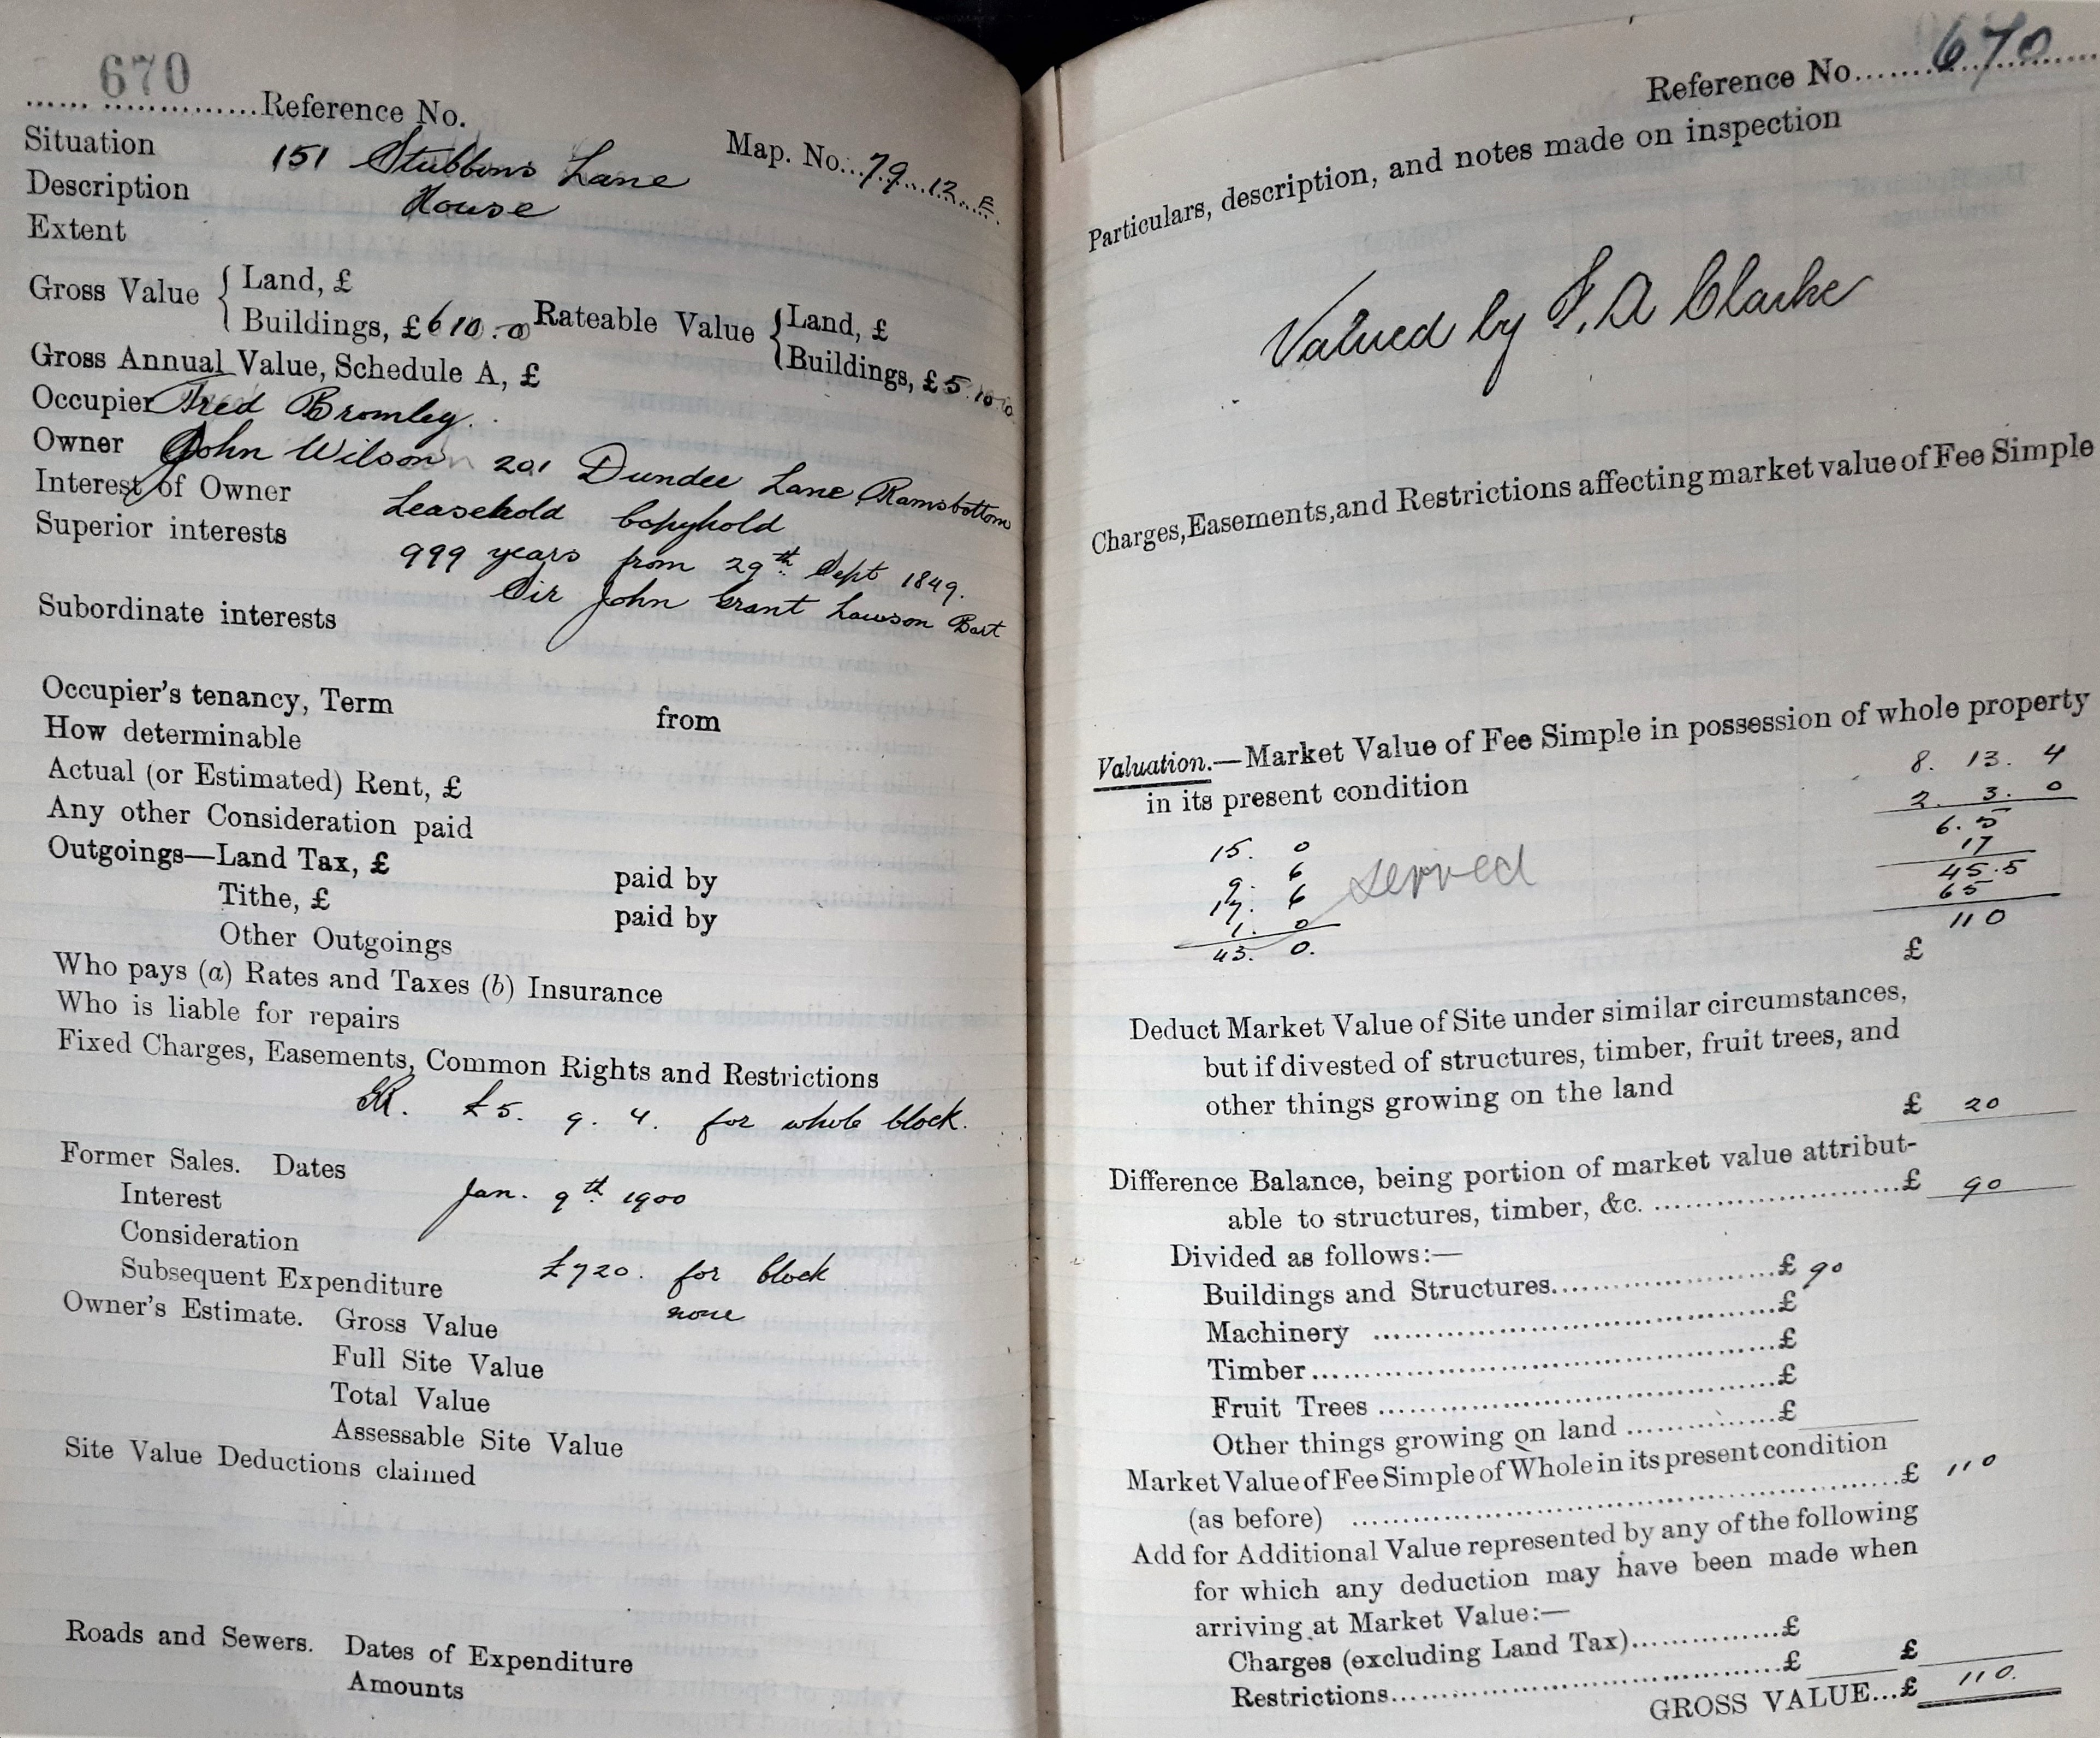 670
...................Reference No.
Map. No. 79. 12. E.
Situation 151 Stubbins Lane
Description House
Extent
Gross Value { Land, £
Buildings, £6 10. 0
Rateable Value { Land, £
Buildings, £5. 10 0
Gross Annual Value, Schedule A, £
Occupier Fred Bromley.
Owner John Wilson 201 Dundee Lane Ramsbottom
Interest of Owner Leasehold Copyhold
Superior interests 999 years from 29th Sept 1849.
Sir John Grant Lawson Bart
Subordinate interests
Occupier's tenancy, Term from
How determinable
Actual (or Estimated) Rent, £
Any other Consideration paid
Outgoings—Land Tax, £ paid by
Tithe, £ paid by
Other Outgoings
Who pays (a) Rates and Taxes (b) Insurance
Who is liable for repairs
Fixed Charges, Easements, Common Rights and Restrictions
£5. 9. 4. for whole block.
Former Sales. Dates Jan. 9th 1900
Interest
Consideration £720. for block
Subsequent Expenditure none
Owner's Estimate. Gross Value
Full Site Value
Total Value
Assessable Site Value
Site Value Deductions claimed
Roads and Sewers. Dates of Expenditure
Amounts
Reference No. 670
Particulars, description, and notes made on inspection
Valued by F. A Clarke
Charges, Easements, and Restrictions affecting market value of Fee Simple
Valuation.—Market Value of Fee Simple in possession of whole property
in its present condition
8. 13. 4
2. 3. 0
6. 5
17
45.5
65
110
£
15. 0
9. 6
17. 6
1. 0
43. 0.
served
Deduct Market Value of Site under similar circumstances,
but if divested of structures, timber, fruit trees, and
other things growing on the land £ 20
Difference Balance, being portion of market value attribut-
able to structures, timber, &c. ........................£ 90
Divided as follows:—
Buildings and Structures........................£ 90
Machinery ........................£
Timber........................£
Fruit Trees ........................£
Other things growing on land ............£
Market Value of Fee Simple of Whole in its present condition
(as before) ........................£ 110
Add for Additional Value represented by any of the following
for which any deduction may have been made when
arriving at Market Value:—
Charges (excluding Land Tax)...............£
Restrictions........................£ £
GROSS VALUE...£ 110.